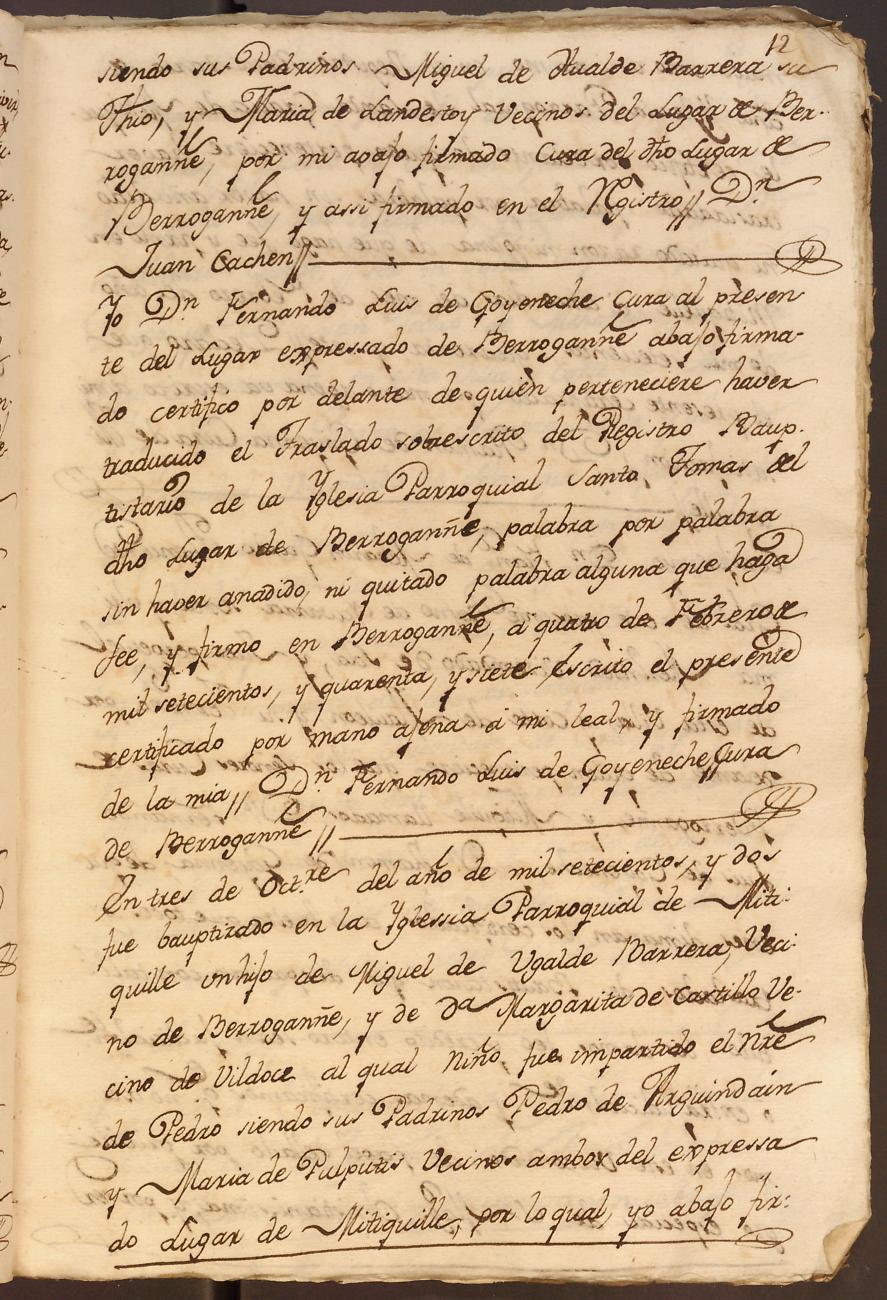 12
siendo sus Padrinos Miguel de Hualde Barrera su
Thio, y Maria de Landestoy Vecinos del Lugar de Ber-
roganñe, por mi avajo firmado Cura del dho Lugar de
Berroganñe, y assi firmado en el Rgistro // Dn
Juan Cachen //
Yo Dn Fernando Luis de Goyeneche Cura al presen
te del Lugar expressado de Berroganñe abajo firma-
do certifico por delante de quien perteneciere haver
traducido el Traslado sobrescrito del Registro Baup-
tistario de la Yglesia Parroquial Santo Tomas del
dho Lugar de Berroganñe, palabra por palabra
sin haver anadido, ni quitado palabra alguna que haga
fee, y firmo en Berroganñe, a quatro de Febrero de
mil setecientos, y quarenta, y siete Escrito el presente
certificado por mano ajena a mi leal, y firmado
de la mia // Dn Fernando Luis de Goyeneche // Cura
de Berroganñe //
En tres de Octre del año de mil setecientos, y dos
fue bauptizado en la Yglessia Parroquial de Miti-
quille un hijo de Miguel de Ugalde Barrera, Veci-
no de Berroganñe, y de Da Margarita de Castillo Ve-
cino de Vildoce al qual Niño fue impartido el Nre
de Pedro siendo sus Padrinos Pedro de Arguindain
y Maria de Pulputis Vecinos ambos del expressa
do Lugar de Mitiquille, por lo qual, yo abajo fir-